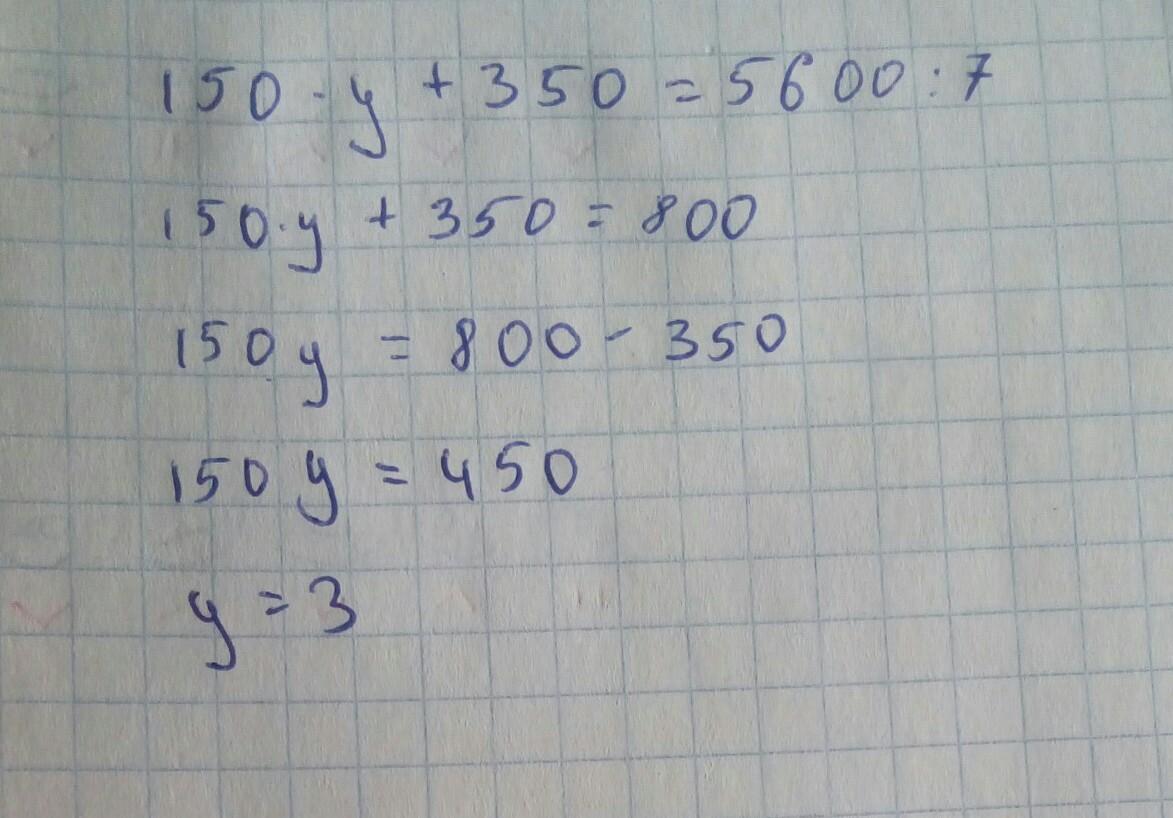 150 · y + 350 = 5600 : 7
150 · y + 350 = 800
150 y = 800 - 350
150 y = 450
y = 3